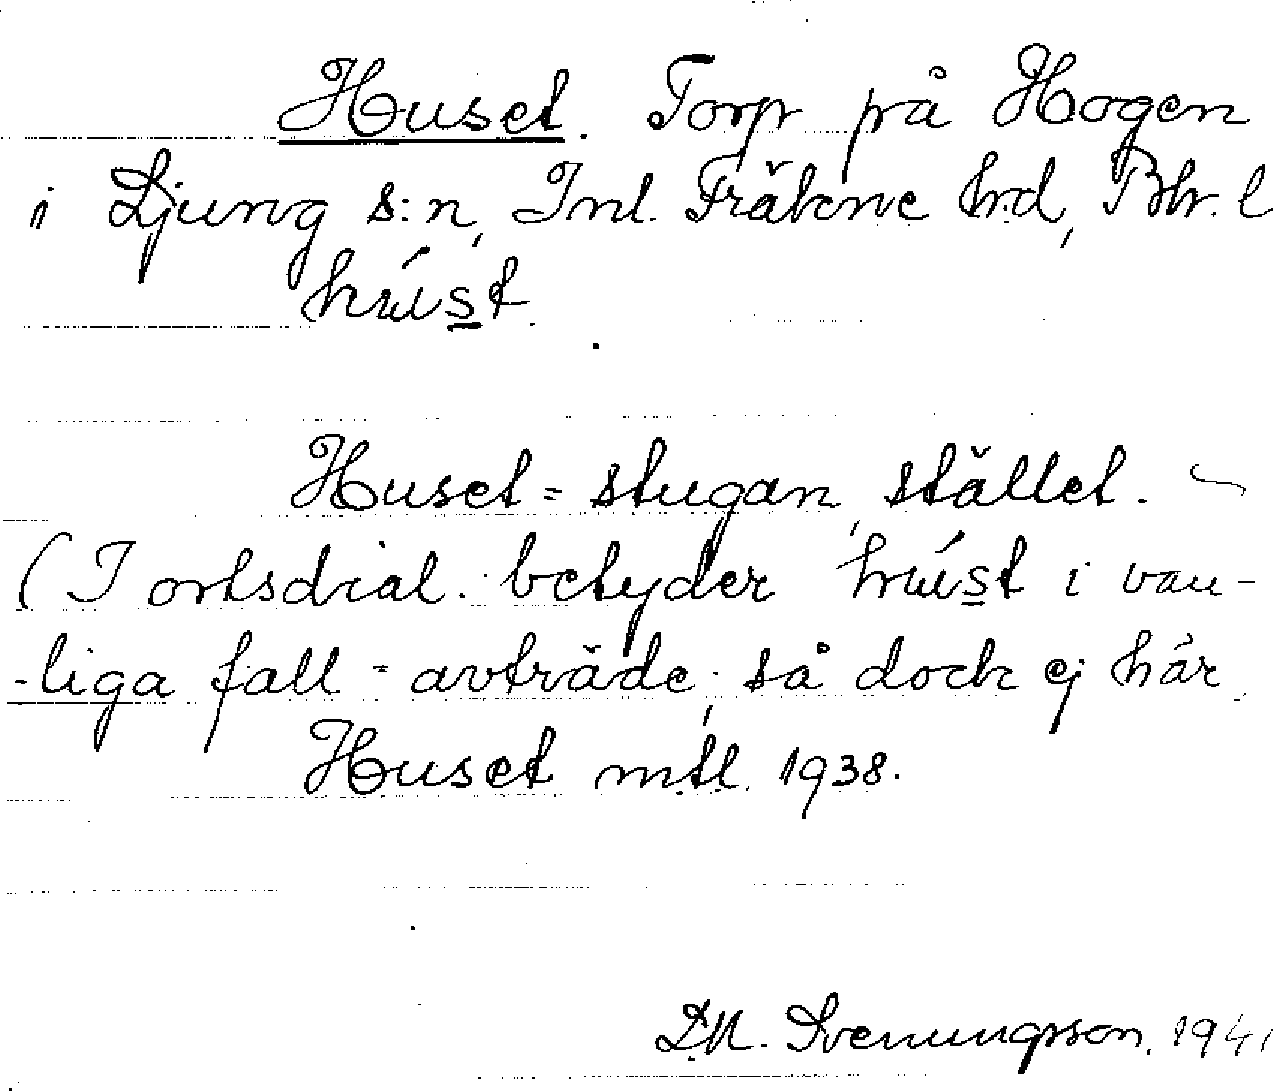 Huset. Torp på Hogen
i Ljung s:n, Inl. Fräkne hrd, Bhr. l
hús̲t.
Huset = stugan, stället. ~
(I ortsdial. betyder hús̲t i van-
-liga fall = avträde, så dock ej här.
Huset mtl. 1938.
Svenungsson. 1941